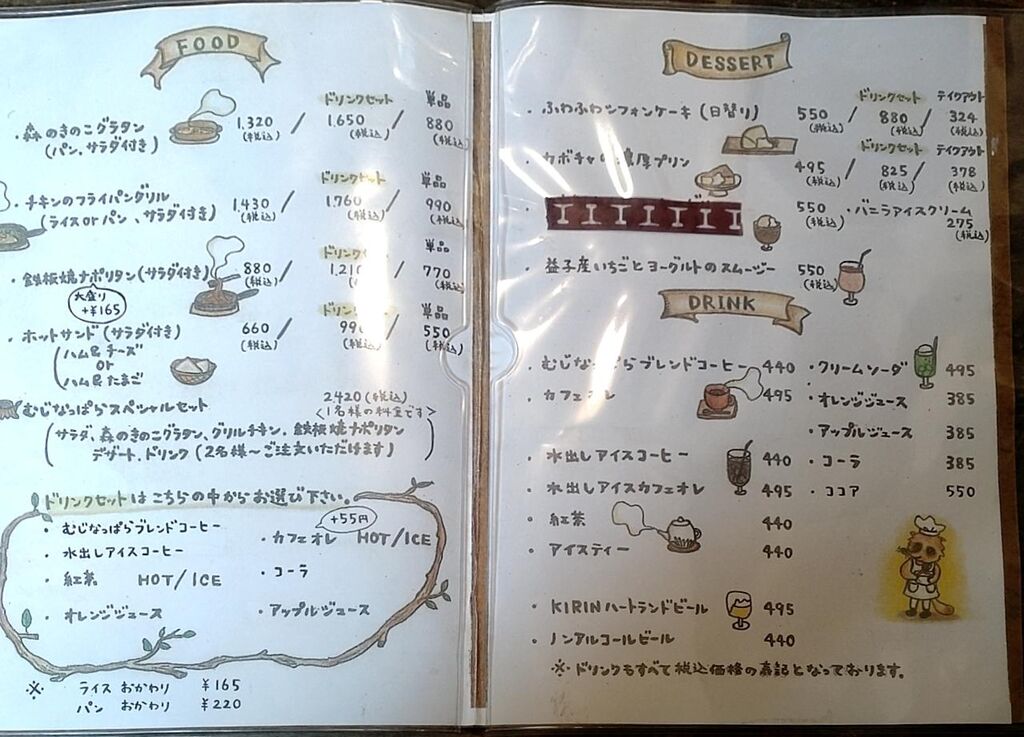 FOOD
ドリンクセット 単品
・森のきのこグラタン 1,320 / 1,650 / 880
(パン、サラダ付き) (税込) (税込) (税込)
ドリンクセット 単品
・チキンのフライパングリル 1,430 / 1,760 / 990
(ライスorパン、サラダ付き) (税込) (税込) (税込)
ドリンクセット 単品
・鉄板焼ナポリタン(サラダ付き) 880 / 1,210 / 770
(税込) (税込) (税込)
大盛り
+¥165
ドリンクセット 単品
・ホットサンド(サラダ付き) 660 / 990 / 550
(税込) (税込) (税込)
(ハム&チーズ
or
ハム&たまご
むじなっぱらスペシャルセット 2420(税込)
<1名様の料金です>
(サラダ、森のきのこグラタン、グリルチキン、鉄板焼ナポリタン
デザート、ドリンク(2名様〜ご注文いただけます))
ドリンクセットはこちらの中からお選び下さい。
・むじなっぱらブレンドコーヒー
・水出しアイスコーヒー
・紅茶 HOT/ICE
・オレンジジュース
+55円
・カフェオレ HOT/ICE
・コーラ
・アップルジュース
※ ライスおかわり ¥165
パン おかわり ¥220
DESSERT
ドリンクセット テイクアウト
・ふわふわシフォンケーキ(日替り) 550 / 880 / 324
(税込) (税込) (税込)
ドリンクセット テイクアウト
・カボチャの濃厚プリン 495 / 825 / 378
(税込) (税込) (税込)
・ 550
(税込)
・バニラアイスクリーム
275
(税込)
・益子産いちごとヨーグルトのスムージー 550
(税込)
DRINK
・むじなっぱらブレンドコーヒー 440
・カフェオレ 495
・水出しアイスコーヒー 440
・水出しアイスカフェオレ 495
・紅茶 440
・アイスティー 440
・KIRINハートランドビール 495
・ノンアルコールビール 440
・クリームソーダ 495
・オレンジジュース 385
・アップルジュース 385
・コーラ 385
・ココア 550
※ドリンクもすべて税込価格の表記となっております。